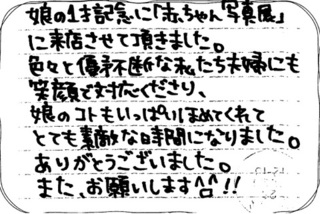 娘の1才記念に「赤ちゃん写真展」
に来店させて頂きました。
色々と優予不断な私たち夫婦にも
笑顔で対応くださり、
娘のコトもいっぱいほめてくれて
とても素敵な時間になりました。
ありがとうございました。
また、お願いします^^!!